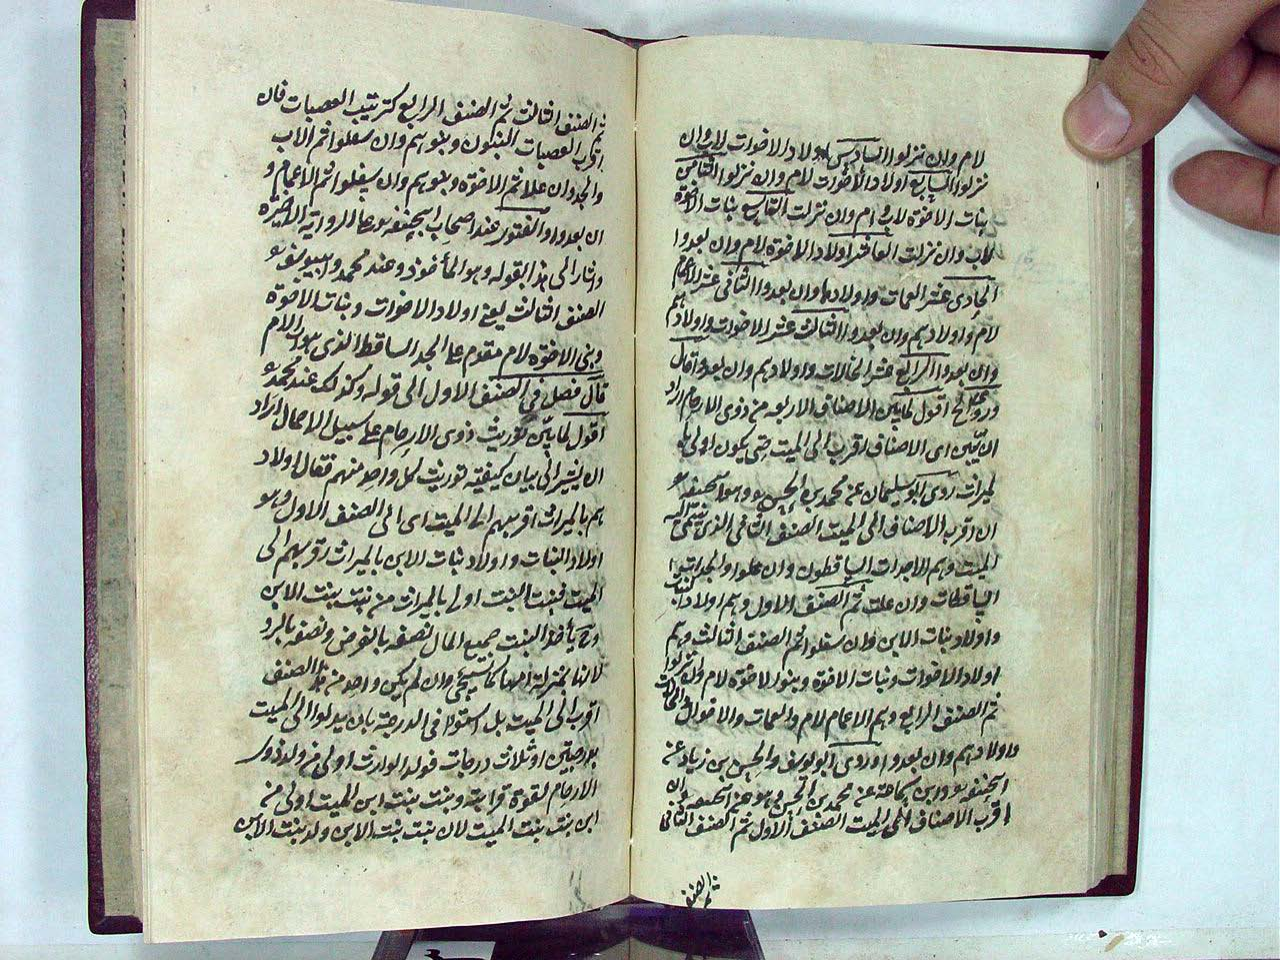 لام وان نزلوا السادس اولاد الاخوات لاب وان
نزلوا السابع اولاد الاخوات لام وان نزلوا الثامن
بنات الاخوة لاب وام وان نزلت التاسع بنات الاخوة
لاب وان نزلت العاشر اولاد الاخوة لام وان بعدوا
الحادى عشر العمات واولادها وان بعدوا الثانى عشر الاعمام
لام واولادهم وان بعدوا الثالث عشر الاخوات واولادهم
وان بعدوا الرابع عشر الخالات واولادهم وان بعدوا قال
وروى الخ اقول لما بين الاصناف الاربعه من ذوى الارحام اراد
ان يبين اى الاصناف اقرب الى الميت حتى يكون اولى
لميراث روى ابو سليمان عن محمد بن الحسن
ان اقرب الاصناف الى الميت الصنف الثانى الذى ينتمى اليه
الميت وهم الاجداد الساقطون وان علوا والجدات
الساقطات وان علت ثم الصنف الاول وهم اولاد البنات
واولاد بنات الابن وان سفلوا ثم الصنف الثالث وهم
اولاد الاخوات وبنات الاخوة وبنو الاخوة لام وان نزلوا
ثم الصنف الرابع وهم الاعمام لام والعمات والاخوال والخالات
واولادهم وان بعدوا وروى ابو يوسف والحسن بن زياد عن
ابيحنيفه وابن سماعة عن محمد بن الحسن عن ابيحنيفه ان
اقرب الاصناف الى الميت الصنف الاول ثم الصنف الثانى
ثم الصنف
ثم الصنف الثالث ثم الصنف الرابع كترتيب العصبات فان
اقرب العصبات البنون وبنوهم وان سفلوا ثم الاب
والجد وان علا ثم الاخوة وبنوهم وان سفلوا ثم الاعمام و
ان بعدوا والفتوى عند اصحاب ابيحنيفه على الرواية الاخيرة
واشار الى هذا بقوله وهو المأخوذ وعند محمد وابيوسف
الصنف الثالث يعنى اولاد الاخوات وبنات الاخوة
وبنى الاخوة لام مقدم على الجد الساقط الذى هو اب الام
قال فصل فى الصنف الاول الى قوله وكذلك عند محمد
اقول لما بين توريث ذوى الارحام على سبيل الاجمال اراد
ان يشير الى بيان كيفية توريث كل واحد منهم فقال اولا
هم بالميراث اقربهم الى الميت اى الى الصنف الاول وهو
اولاد البنات واولاد بنات الابن بالميراث اقربهم الى
الميت فبنت البنت اولى بالميراث من بنت بنت الابن
وح يأخذ البنت جميع المال نصفه بالفرض ونصفه بالرد
لانها بمنزلة امها كما سيجئ وان لم يكن واحد من هذا الصنف
اقرب الى الميت بل استووا فى الدرجة بان يدلوا الى الميت
بدرجتين او ثلاث درجات فولد الوارث اولى من ولد ذوى
الارحام لقوة قرابته وبنت بنت ابن الميت اولى من
ابن بنت بنت الميت لان بنت بنت الابن ولد بنت الابن